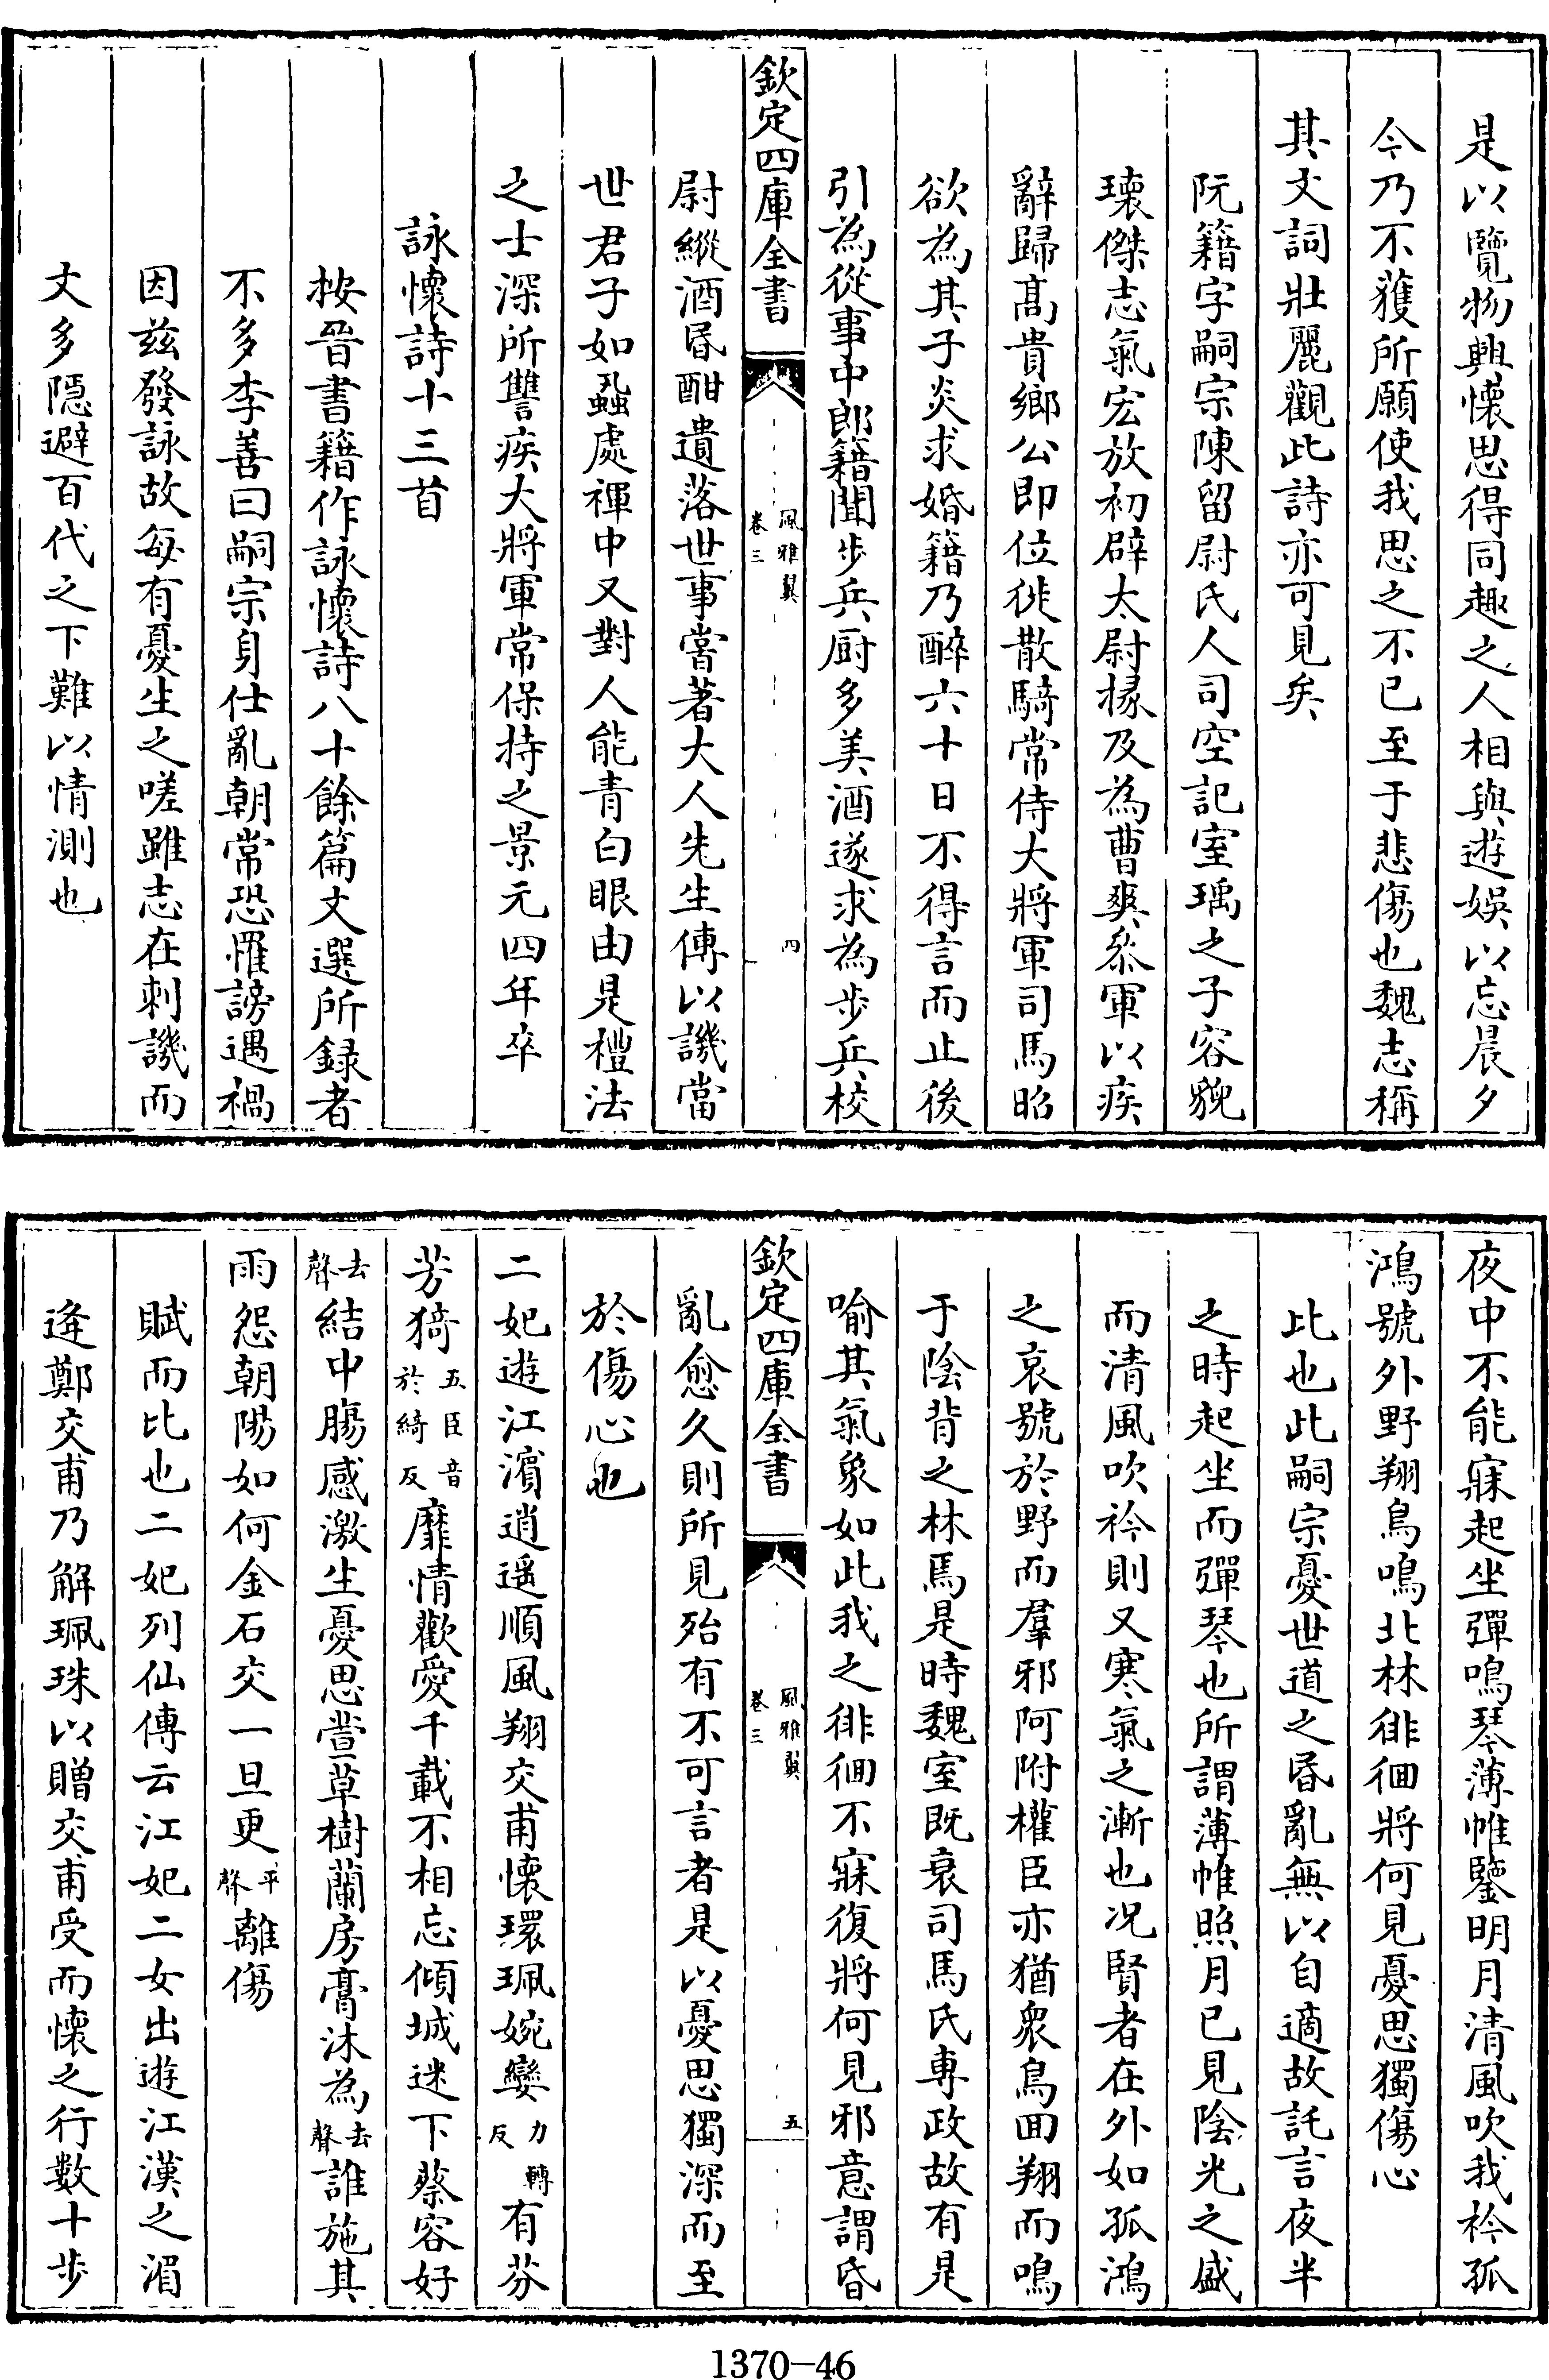 是以覽物興懷思得同趣之人相與遊娛以忘晨夕
今乃不獲所願使我思之不已至于悲傷也魏志稱
其文詞壯麗觀此詩亦可見矣
阮籍字嗣宗陳留尉氏人司空記室瑀之子容貌
瓌傑志氣宏放初辟太尉掾及為曹爽叅軍以疾
辭歸髙貴鄉公即位徙散騎常侍大將軍司馬昭
欲為其子炎求婚籍乃醉六十日不得言而止後
引為從事中郎籍聞步兵厨多美酒遂求為步兵校
欽定四庫全書
風雅翼
卷三
四
尉縱酒昬酣遺落世事嘗著大人先生傳以譏當
世君子如蝨處褌中又對人能青白眼由是禮法
之士深所讐疾大將軍常保持之景元四年卒
詠懷詩十三首
按晉書籍作詠懷詩八十餘篇文選所録者
不多李善曰嗣宗身仕亂朝常恐罹謗遇禍
因兹發詠故每有憂生之嗟雖志在刺譏而
文多隱避百代之下難以情測也
夜中不能寐起坐彈鳴琴薄帷鑒明月清風吹我衿孤
鴻號外野翔鳥鳴北林徘徊將何見憂思獨傷心
比也此嗣宗憂世道之昬亂無以自適故託言夜半
之時起坐而彈琴也所謂薄帷照月已見陰光之盛
而清風吹衿則又寒氣之漸也况賢者在外如孤鴻
之哀號於野而羣邪阿附權臣亦猶衆鳥回翔而鳴
于陰背之林焉是時魏室既衰司馬氏専政故有是
喻其氣象如此我之徘徊不寐復將何見邪意謂昏
欽定四庫全書
風雅翼
卷三
五
亂愈久則所見殆有不可言者是以憂思獨深而至
於傷心也
二妃遊江濵逍遥順風翔交甫懷環珮婉孌力轉反有芬
芳猗五臣音於綺反靡情歡愛千載不相忘傾城迷下蔡容好
去聲結中腸感激生憂思萱草樹蘭房膏沐為去聲誰施其
雨怨朝陽如何金石交一旦更平聲離傷
賦而比也二妃列仙傳云江妃二女出遊江漢之湄
逄鄭交甫乃解珮珠以贈交甫受而懷之行數十步
1370-46